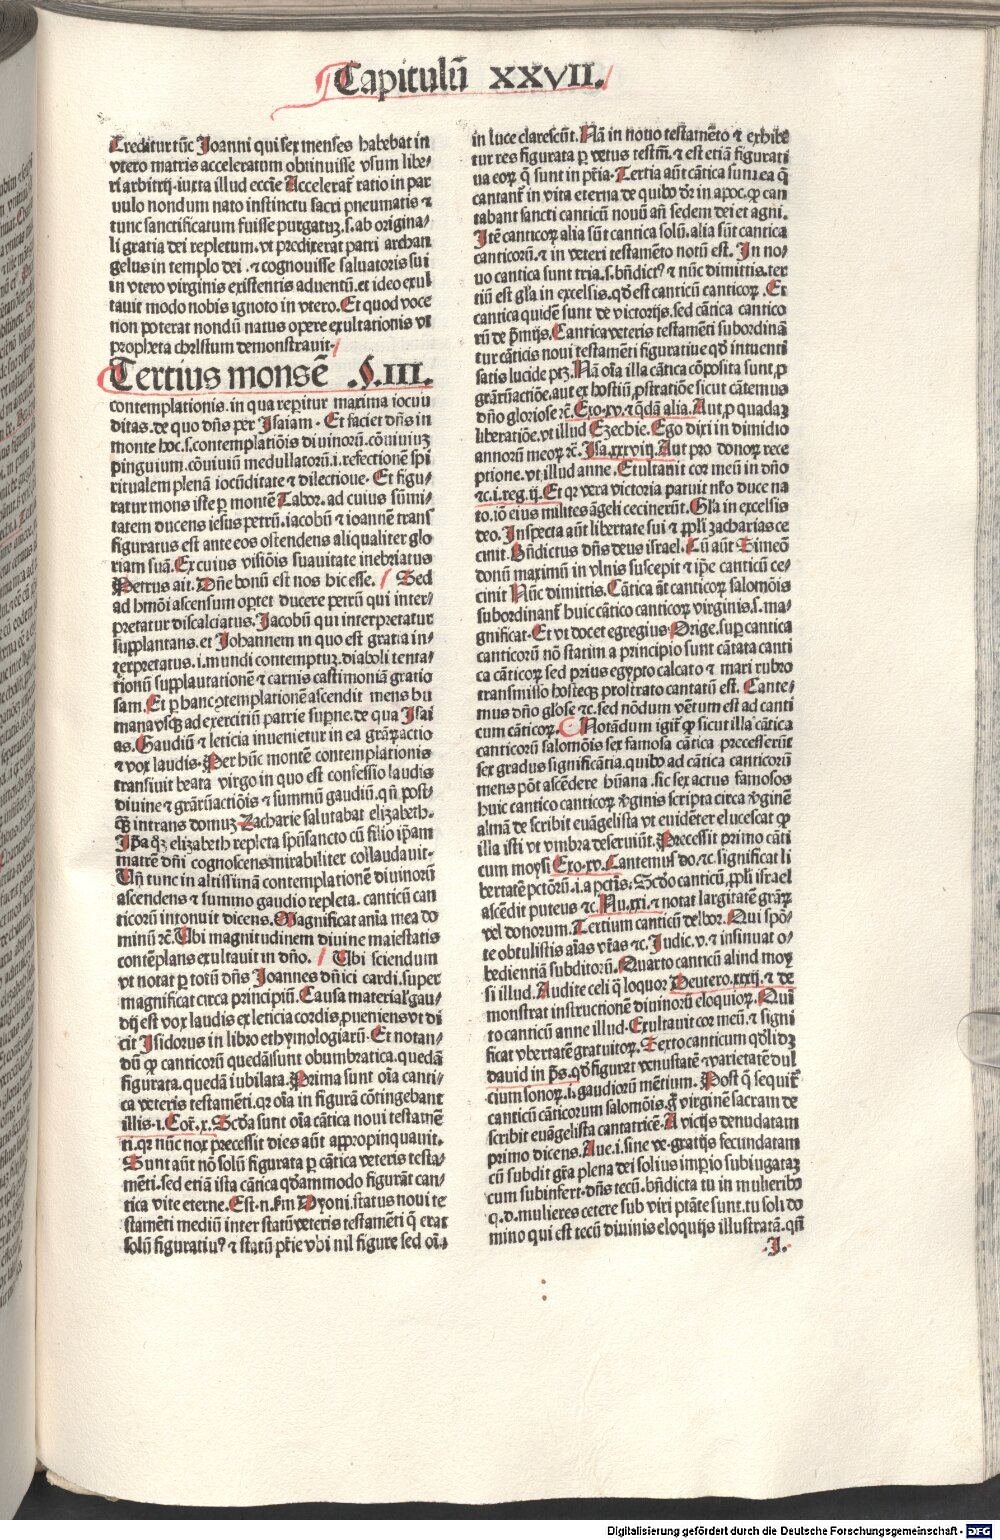 Capitulũ XXVII.
Creditur tũc Joanni qui sex menses habebat in
vtero matris acceleratum obtinuisse vsum libe⸗
ri arbitrij. iuxta illud eccl̃ie Accelerat̃ ratio in par
uulo nondum nato instinctu sacri pneumatis ⁊
tunc sanctificatum fuisse purgatuꝫ. s. ab origina⸗
li gratia dei repletum. vt predixerat patri archan
gelus in templo dei .⁊ cognouisse saluatoris sui
in vtero virginis existentis aduentũ. et ideo exul
tauit modo nobis ignoto in vtero. Et quod voce
non poterat nondũ natus opere exultationis vt
propheta christum demonstrauit.
Tertius mons ẽ .§. III.
contemplationis. in qua reperitur maxima iocun
ditas. de quo dñs per Isaiam. Et faciet dñs in
monte hoc. s. contemplatiõis diuinorũ. cõuiuiuꝫ
pinguium. cõuiuiũ medullatorũ. i. refectionẽ spi
ritualem plenã iocũditate ⁊ dilectione. Et figu⸗
ratur mons iste ꝑ montẽ Tabor. ad cuius sũmi⸗
tatem ducens iesus petrũ. iacobũ ⁊ ioannẽ trans
figuratus est ante eos ostendens aliqualiter glo
riam suã. Ex cuius visiõis suauitate inebriatus
Petrus ait. Dñe bonũ est nos hic esse. Sed
ad hmõi ascensum oportet ducere petrũ qui inter⸗
pretatur discalciatus. Jacobũ qui interpretatur
supplantans. et Johannem in quo est gratia in⸗
terpretatus. i. mundi contemptuꝫ. diaboli tenta⸗
tionũ supplantationẽ ⁊ carnis castimoniã gratio
sam. Et ꝑ hanc ꝯtemplationẽ ascendit mens hu
mana vsqꝫ ad exercitiũ patrie supne. de qua Isai
as. Gaudiũ ⁊ leticia inuenietur in ea grãꝝ actio
⁊ vox laudis. Per hũc montẽ contemplationis
transiuit beata virgo in quo est confessio laudis
diuine ⁊ grãrũ actiõis ⁊ summũ gaudiũ. qñ post⸗
qꝫ intrans domuꝫ Zacharie salutabat elizabeth.
Ip̃a qꝫ elizabeth repleta spũsancto cũ filio ip̃am
matrẽ dñi cognoscens mirabiliter collaudauit.
Uñ tunc in altissimã contemplationẽ diuinorũ
ascendens ⁊ summo gaudio repleta. canticũ can
ticorũ intonuit dicens. Magnificat ãnia mea do
minũ ⁊c̃. Ubi magnitudinem diuine maiestatis
contẽplans exultauit in dño. Ubi sciendum
vt notat ꝑ totũ dñs Joannes dñici cardi. super
magnificat circa principiũ. Causa material̃ gau⸗
dij est vox laudis ex leticia cordis ꝓueniens vt di
cit Isidorus in libro ethymologiarũ. Et notan⸗
dũ ꝙ canticorũ quedã sunt obumbratica. quedã
figurata. quedã iubilata. Prima sunt oĩa canti⸗
ca veteris testamẽti. qꝛ oĩa in figurã cõtingebant
illis. i. Cor̃. x. Scd̃a sunt oĩa cãtica noui testamẽ
ti. qꝛ nũc nox precessit dies aũt appropinquauit.
Sunt aũt nõ solũ figurata ꝑ cãtica veteris testa⸗
mẽti. sed etiã ista cãtica qd̃ammodo figurãt can⸗
tica vite eterne. Est. n. s̃m Dyoni. status noui te
stamẽti mediũ inter statũ veteris testamẽti q̃ erat
solũ figuratiuꝰ ⁊ statũ pr̃ie vbi nil figure sed oĩa
in luce clarescũt. Nã in nouo testamẽto ⁊ exhibe
tur res figurata ꝑ vetus testm̃. ⁊ est etiã figurati
ua eoꝝ q̃ sunt in pr̃ia. Tertia aũt cãtica sunt ea q̃
cantant̃ in vita eterna de quibꝰ dr̃ in apoc. ꝙ can
tabant sancti canticũ nouũ añ sedem dei et agni.
Itẽ canticoꝝ alia sũt cantica solũ. alia sũt cantica
canticorũ. ⁊ in veteri testamẽto notũ est. In no⸗
uo cantica sunt tria. s. bñdictꝰ ⁊ nũc dimittis. ter
tiũ est gl̃a in excelsis. qd̃ est canticũ canticoꝝ. Et
cantica quidẽ sunt de victorijs. sed cãtica cantico
rũ de p̃mijs. Cantica veteris testamẽti subordinã
tur cãticis noui testamẽti figuratiue qd̃ intuenti
satis lucide ptꝫ. Nã oĩa illa cãtica cõposita sunt ꝓ
grãrũ actiõe. aut ex hostiũ ꝓstratiõe sicut cãtemus
dño gloriose ⁊c̃. Exo. xv. ⁊ q̃dã alia. Aut ꝓ quadaꝫ
liberatiõe. vt illud Ezechie. Ego dixi in dimidio
annorũ meoꝝ ⁊c̃. Isa. xxxviij. Aut pro donoꝝ rece
ptione. vt illud anne. Exultauit cor meũ in dño
⁊c. i. reg. ij. Et qꝛ vera victoria patuit nr̃o duce na
to. iõ eius milites ãgeli cecinerũt. Gl̃a in excelsis
deo. Inspecta aũt libertate sui ⁊ ppl̃i zacharias ce
cinit. Bñdictus dñs deus israel. Cũ aũt Simeõ
donũ maximũ in vlnis suscepit ⁊ ip̃e canticũ ce⸗
cinit Nũc dimittis. Cãtica aũt canticoꝝ salomõis
subordinant̃ huic cãtico canticoꝝ virginis. s. ma⸗
gnificat. Et vt docet egregius Orige. suꝑ cantica
canticorũ nõ statim a principio sunt cãtata canti
ca cãticoꝝ sed prius egypto calcato ⁊ mari rubro
transmisso hosteqꝫ prostrato cantatũ est. Cante⸗
mus dño gl̃ose ⁊c. sed nõdum vẽtum est ad canti
cum cãticoꝝ. Notãdum igit̃ ꝙ sicut illa cãtica
canticorũ salomõis sex famosa cãtica precesserũt
sex gradus significãtia. quibꝰ ad cãtica canticorũ
mens põt ascẽdere hũana. sic sex actus famosos
huic cantico canticoꝝ ṽginis scripta circa ṽginẽ
almã describit euãgelista vt euidẽter elucescat ꝙ
illa isti vt vmbra deseruiũt. Precessit primo cãti
cum moysi Exo. xv. Cantemus dño. ⁊c. significat li
bertatẽ pctõrũ. i. a pctĩs. Scd̃o canticũ. ppl̃i israel
ascẽdit puteus ⁊c. Nu. xxi. ⁊ notat largitatẽ grãꝝ
vel donorum. Tertium canticũ delbor. Qui spõ⸗
te obtulistis aĩas vr̃as ⁊c. Judic. v. ⁊ insinuat o⸗
bedientiã subditorũ. Quarto canticũ aliud moy
si illud. Audite celi q̃ loquor Deutero. xxxij. ⁊ de
monstrat instructionẽ diuinorũ eloquioꝝ. Quĩ
to canticũ anne illud. Exultauit cor meũ. ⁊ signi
ficat vbertatẽ gratuitoꝝ. Sexto canticum qd̃ dꝫ
dauid in p̃s. qd̃ figurat venustatẽ ⁊ varietatẽ dul
cium sonoꝝ. i. gaudiorũ mẽtium. Post q̃ sequit̃
canticũ cãticorum salomõis. g̃ virginẽ sacram de
scribit euãgelista cantatricẽ. A vicijs denudatam
primo dicens. Aue. i. sine ve. gratijs fecundatam
cũ subdit gr̃a plena dei solius imp̃io subiugataꝫ
cum subinfert. dñs tecũ. bñdicta tu in mulieribꝰ
q. d. mulieres cetere sub viri ptãte sunt. tu soli do
mino qui est tecũ diuinis eloquijs illustratã. qñ
.J.
Digitalisierung gefördert durch die Deutsche Forschungsgemeinschaft - DFG